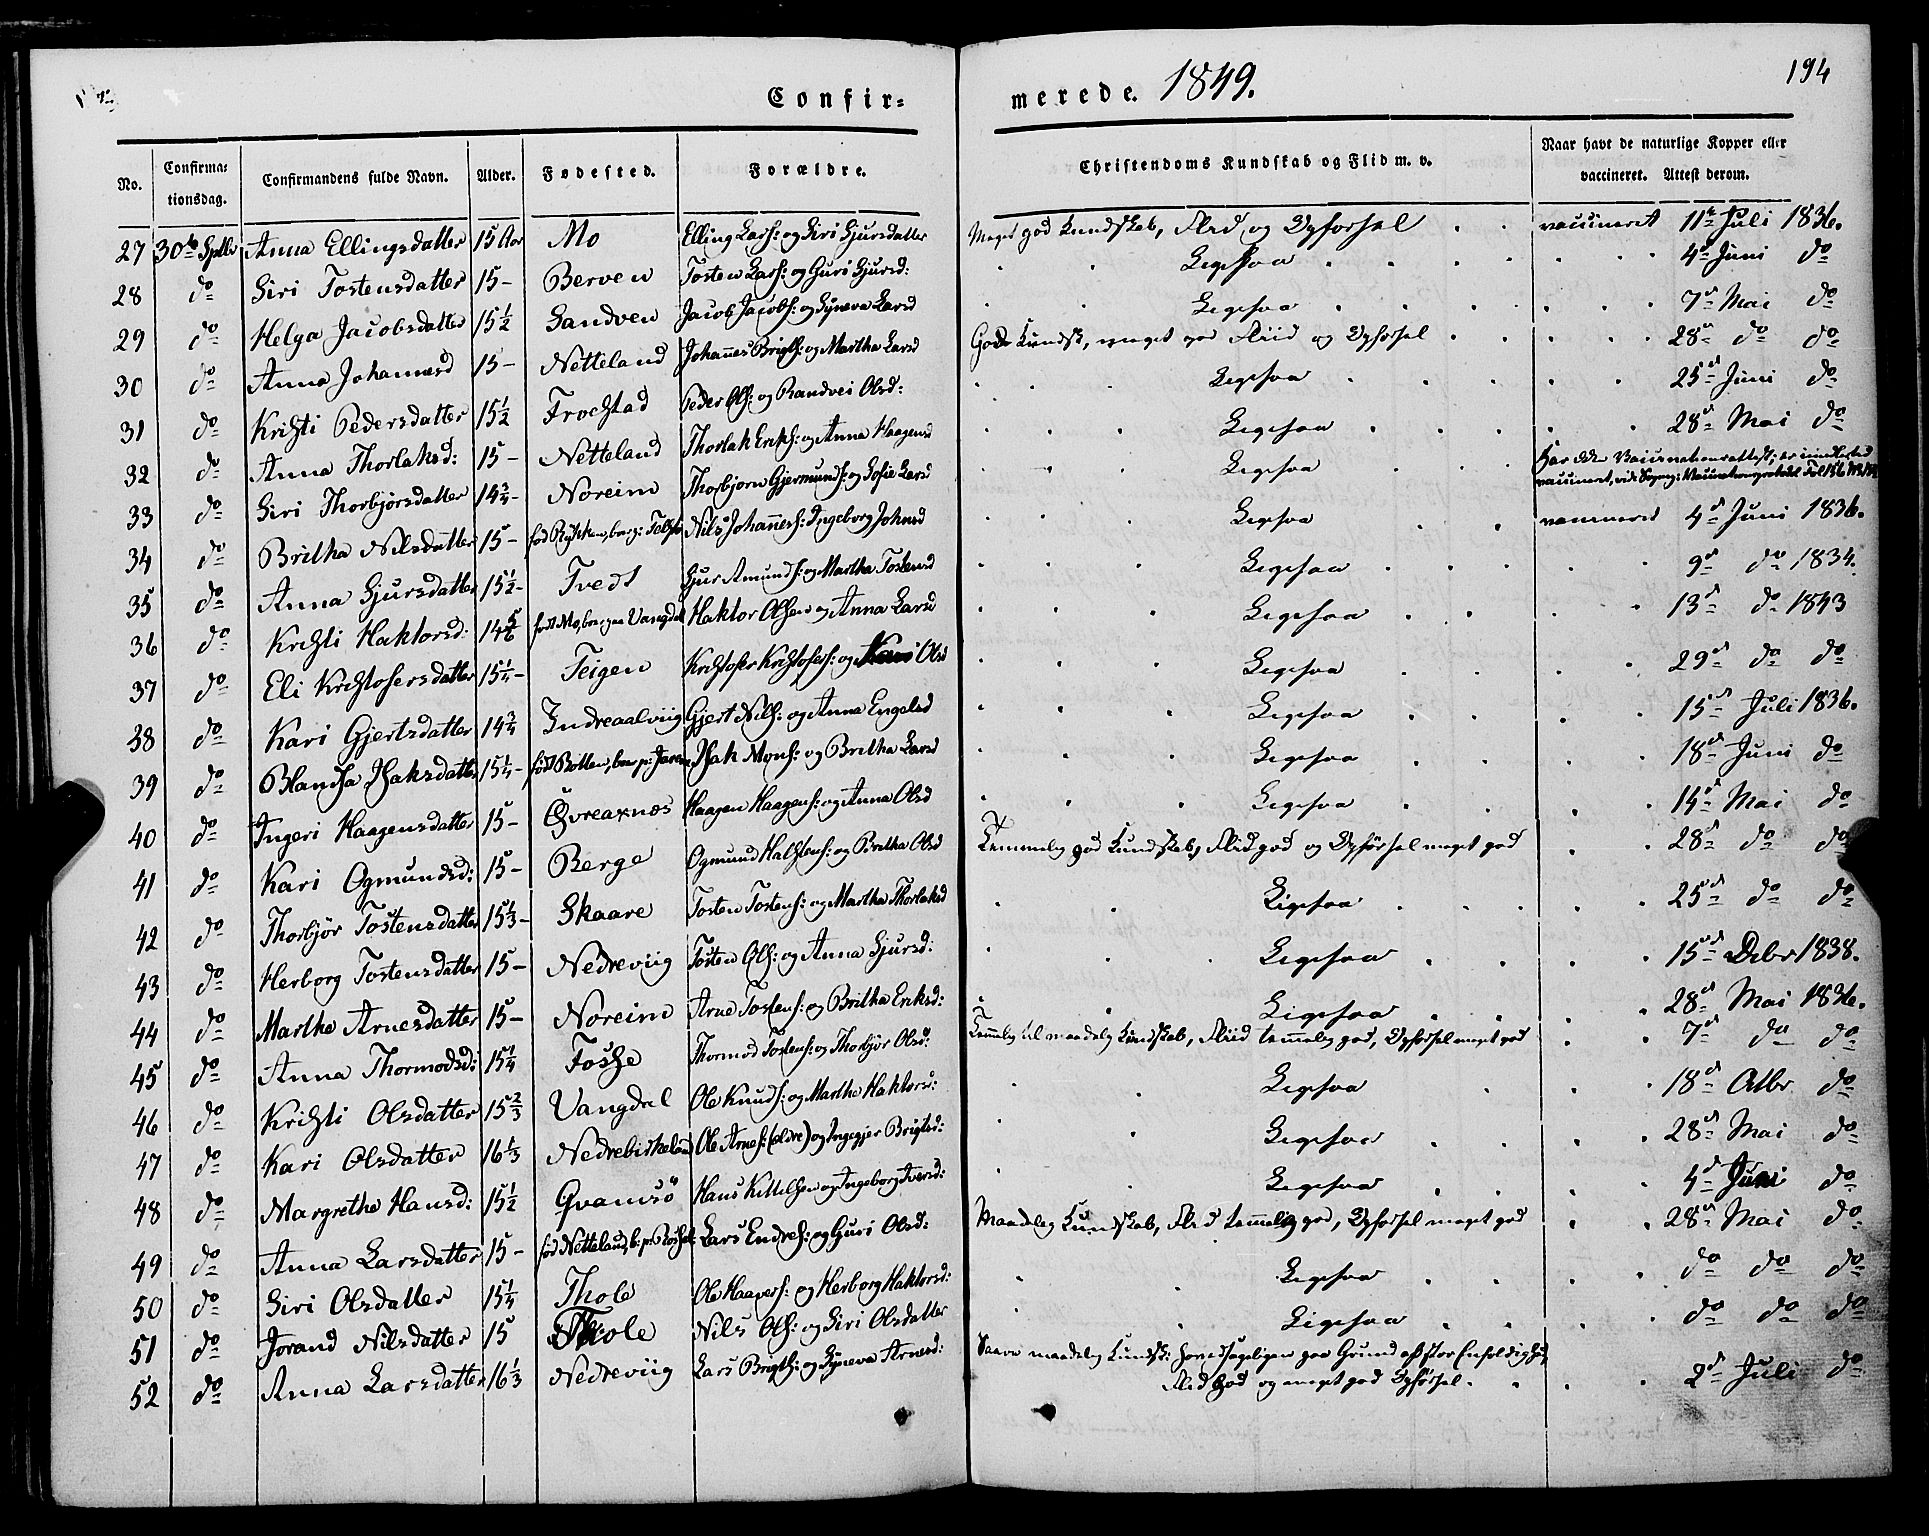 Confir- merede. 1849. 194
No. Confirma-tionsdag. Confirmandens fulde Navn. Alder. Fødested. Forældre. Christendoms Kundskab og Flid m. v. Naar havt de naturlige Kopper eller vaccineret. Attest derom.
27 30te Sptbr Anna Ellingsdatter 15 Aar Mo Elling Lars: og Siri Sjursdatter Meget god Kundskab, Flid og Opførsel vaccineret 11te Juli 1836.
28 do Siri Tostensdatter 15- Berven Tosten Lars: og Guri Sjursd: Ligesaa 4de Juni do
29 do Helga Jacobsdatter 15½ Sandven Jacob Jacobs: og Syneva Larsd Ligesaa 7de Mai do
30 do Anna Johannesd 15- Netteland Johannes Brigts: og Martha Larsd God Kundsk, meget god Fliid og Opførsel 28de do do
31 do Kristi Pedersdatter 15½ Trochstad Peder Ols: og Randvei Olsd: Ligesaa 25de Juni do
32 do Anna Thorlaksd: 15- Netteland Thorlak Eriks: og Anna Haagensd Ligesaa 28de Mai do
33 do Siri Thorbjørsdatter 14¾- Noreim Thorbjørn Gjermunds: og Sofie Larsd Ligesaa Har ikke Vaccinationsattest; er imidlertid vaccineret, vid: Sogns: Vaccinationsprotokol Fol 156
34 do Britha Nilsdatter 15- født Rykken, Nils Johannes: Ingeborg Johnsd Ligesaa vaccineret 4de Juni 1836.
35 do Anna Sjursdatter 15½- Tvedt Sjur Amunds: og Martha Tostensd Ligesaa 9de do 1834.
36 do Kristi Haktorsd: 14 født Mo, Vangdal Haktor Olsen og Anna Larsd Ligesaa 13de do 1843
37 do Eli Kristofersdatter 15¼- Teigen Kristofer Kristofers: og Kari Olsd Ligesaa 29de do do
38 do Kari Gjertsdatter 14¾ Indreaalviig Gjert Nils: og Anna Engelsd Ligesaa 15de Juli 1836.
39 do Blandsa Isaksdatter 15¼- født Botten, Isak Mons: og Britha Larsd Ligesaa 18de Juni do
40 do Ingeri Haagensdatter 15- Øvreaxnæs Haagen Haagens: og Anna Olsd Ligesaa 14de Mai do
41 do Kari Ogmundsd: 15- Berge Ogmund Halstens: og Britha Olsd Temmelig god Kundskab, Flid god og Opførsel meget god 28de do do
42 do Thorbjør Tostensdatter 15⅓- Skaare Tosten Tostens: og Martha Thorlaksd Ligesaa 25de do do
43 do Herborg Tostensdatter 15- Nedreviig Tosten Ols: og Anna Sjursd: Ligesaa 15de Debr 1838.
44 do Marthe Arnesdatter 15- Noreim Arne Tostens: og Britha Eriksd: Ligesaa 28de Mai 1836.
45 do Anna Thormodsd: 15¼ Fosse Thormod Tostens: og Thorbjør Olsd: Temmelig til maadelig Kundskab, Fliid temmelig god, Opførsel meget god 7de do do
46 do Kristi Olsdatter 15⅔ Vangdal Ole Knuds: og Marthe Haktorsd: Ligesaa 18de Octbr do
47 do Kari Olsdatter 16⅓ Nedrebirkeland Ole Arnes: (ældre) og Ingegjer Brigtsd: Ligesaa 28de Mai do
48 do Margrethe Hansd: 15½ Qvamsø Hans Kittilsen og Ingeborg Iversd: Ligesaa 4de Juni do
49 do Anna Larsdatter 15- født Netteland, Lars Endres: og Guri Olsd: Maadelig Kundskab, Flid temmelig god, Opførsel meget god 28de Mai do
50 do Siri Olsdatter 15¼ Thole Ole Haagens: og Herborg Haktorsd: Ligesaa do do do
51 do Jorand Nilsdatter 15 Thole Nils Ols: og Siri Olsdatter Ligesaa do do do
52 do Anna Larsdatter 16⅓ Nedreviig Lars Brigts: og Synneva Arnesd: Saare maadelig Kundsk: hovedsageligen paa Grund af stor Enfoldighed, Flid god og meget god Opførsel. 2de Juli do